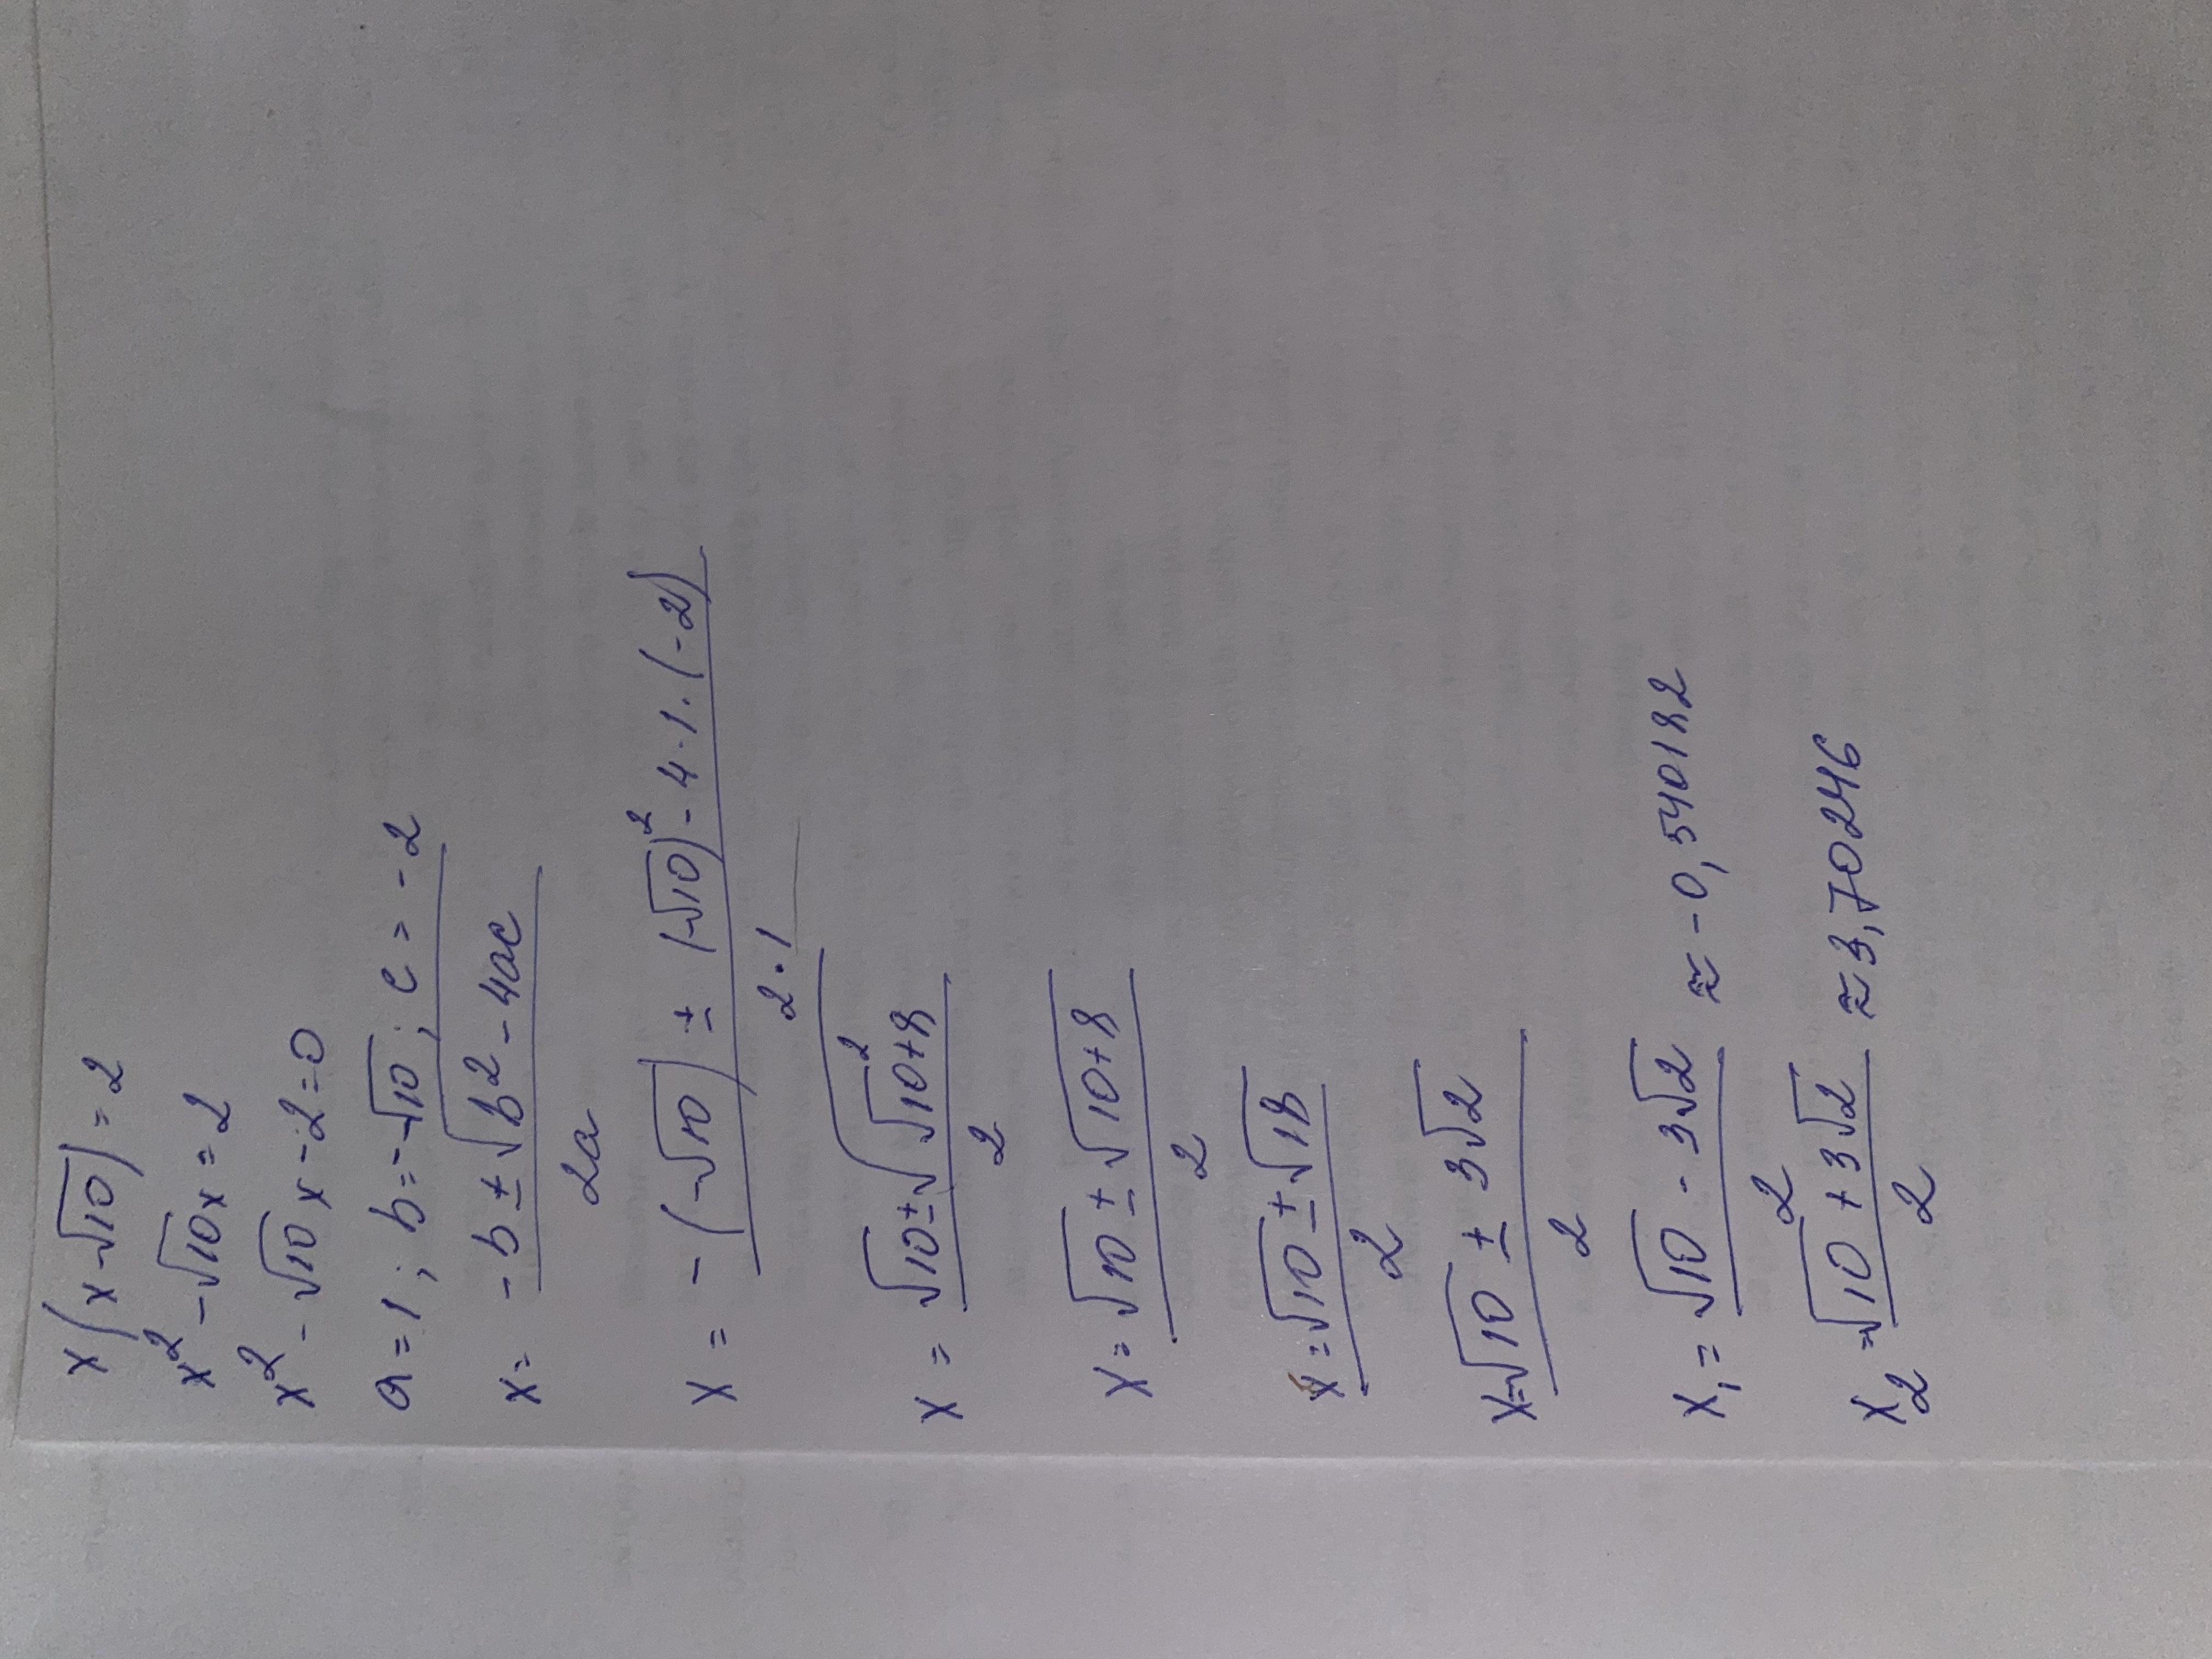 x(x-√10)=2
x²-√10x=2
x²-√10x-2=0
a=1; b=-√10; c=-2
x= (-b±√(b²-4ac))/2a
x = (-(-√10) ± (-√10)²-4·1·(-2))/(2·1)
x = (√10±√(√10²+8))/2
x=(√10±√(10+8))/2
x=(√10±√18)/2
x=(√10±3√2)/2
x₁=(√10-3√2)/2 ≈-0,540182
x₂=(√10+3√2)/2 ≈3,70246